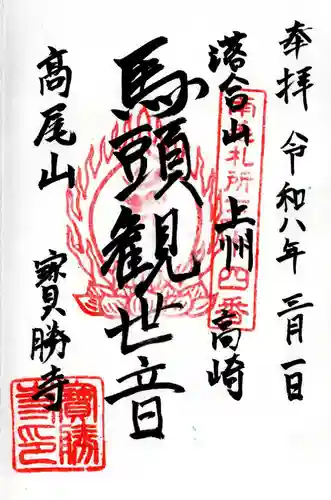 奉拝 令和八年 三月一日
落合山 上州 高崎
馬頭観世音
高尾山 寳勝寺
札所
四番
寳勝